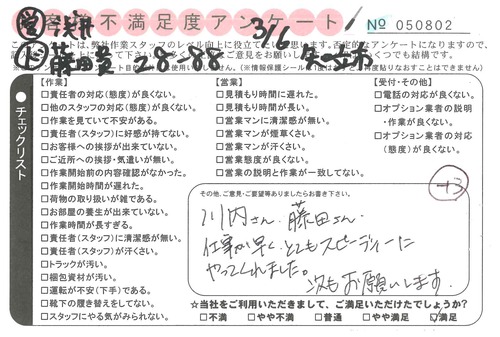 お客様不満足度アンケート
№ 050802
3/6
藤田
28-88
【作業】
□責任者の対応(態度)が良くない。
□他のスタッフの対応(態度)が良くない。
□作業を見ていて不安がある。
□責任者(スタッフ)に好感が持てない。
□お客様への挨拶が出来ていない。
□ご近所への挨拶・気遣いが無い。
□作業開始前の内容確認がなかった。
□作業開始時間が遅れた。
□荷物の取り扱いが雑である。
□お部屋の養生が出来ていない。
□作業時間が長すぎる。
□責任者(スタッフ)に清潔感が無い。
□責任者(スタッフ)が汗くさい。
□トラックが汚い。
□梱包資材が汚い。
□運転が不安(下手)である。
□靴下の履き替えをしてない。
□スタッフにやる気がみられない。
【営業】
□見積もり時間に遅れた。
□見積もり時間が長い。
□営業マンに清潔感が無い。
□営業マンが煙草くさい。
□営業マンが汗くさい。
□営業態度が良くない。
□営業の説明と作業が一致してない。
【受付・その他】
□電話の対応が良くない。
□オプション業者の説明
・作業が良くない。
□オプション業者の対応
(態度)が良くない。
●チェックリスト
+3
その他、ご意見・ご要望等ありましたらお書き下さい。
川内さん、藤田さん、
仕事が早く、とてもスピーディーに
やってくれました。
次もお願いします。
☆当社をご利用いただきまして、ご満足いただけたでしょうか?
□不満 □やや不満 □普通 □やや満足 □満足